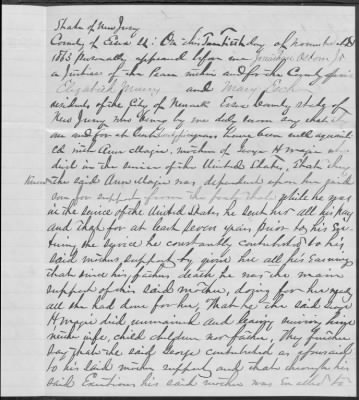 State of New Jersey
County of Essex SS: On this Twentieth day of November AD
1863 Personally appeared before me Jonathan Osborn Jr
a Justice of the Peace within and for the County aforesaid
Elizabeth and Mary
residents of the City of Newark Essex County State of
New Jersey who being by me duly sworn say that they
are and for at least years have been well acquaint
ed with Ann Magie, mother of George H. Magie who
died in the service of the United States, that they
the said Ann Magie was dependent upon her said
son for support, from the fact that while he was
in the service of the United States he sent her all his pay
and that for at least seven years prior to his En
tering the service he constantly contributed to his
said mothers support by giving her all his Earnings
that since his father's death he was the main
support of his said mother, doing for her nearly
all she had done for her, That he the said George
H. Magie died unmarried and leaving surviving him
neither wife, child children nor father, They further
say that the said George contributed as aforesaid
to his said mothers support and that through his
said Exertions his said mother was Enabled to